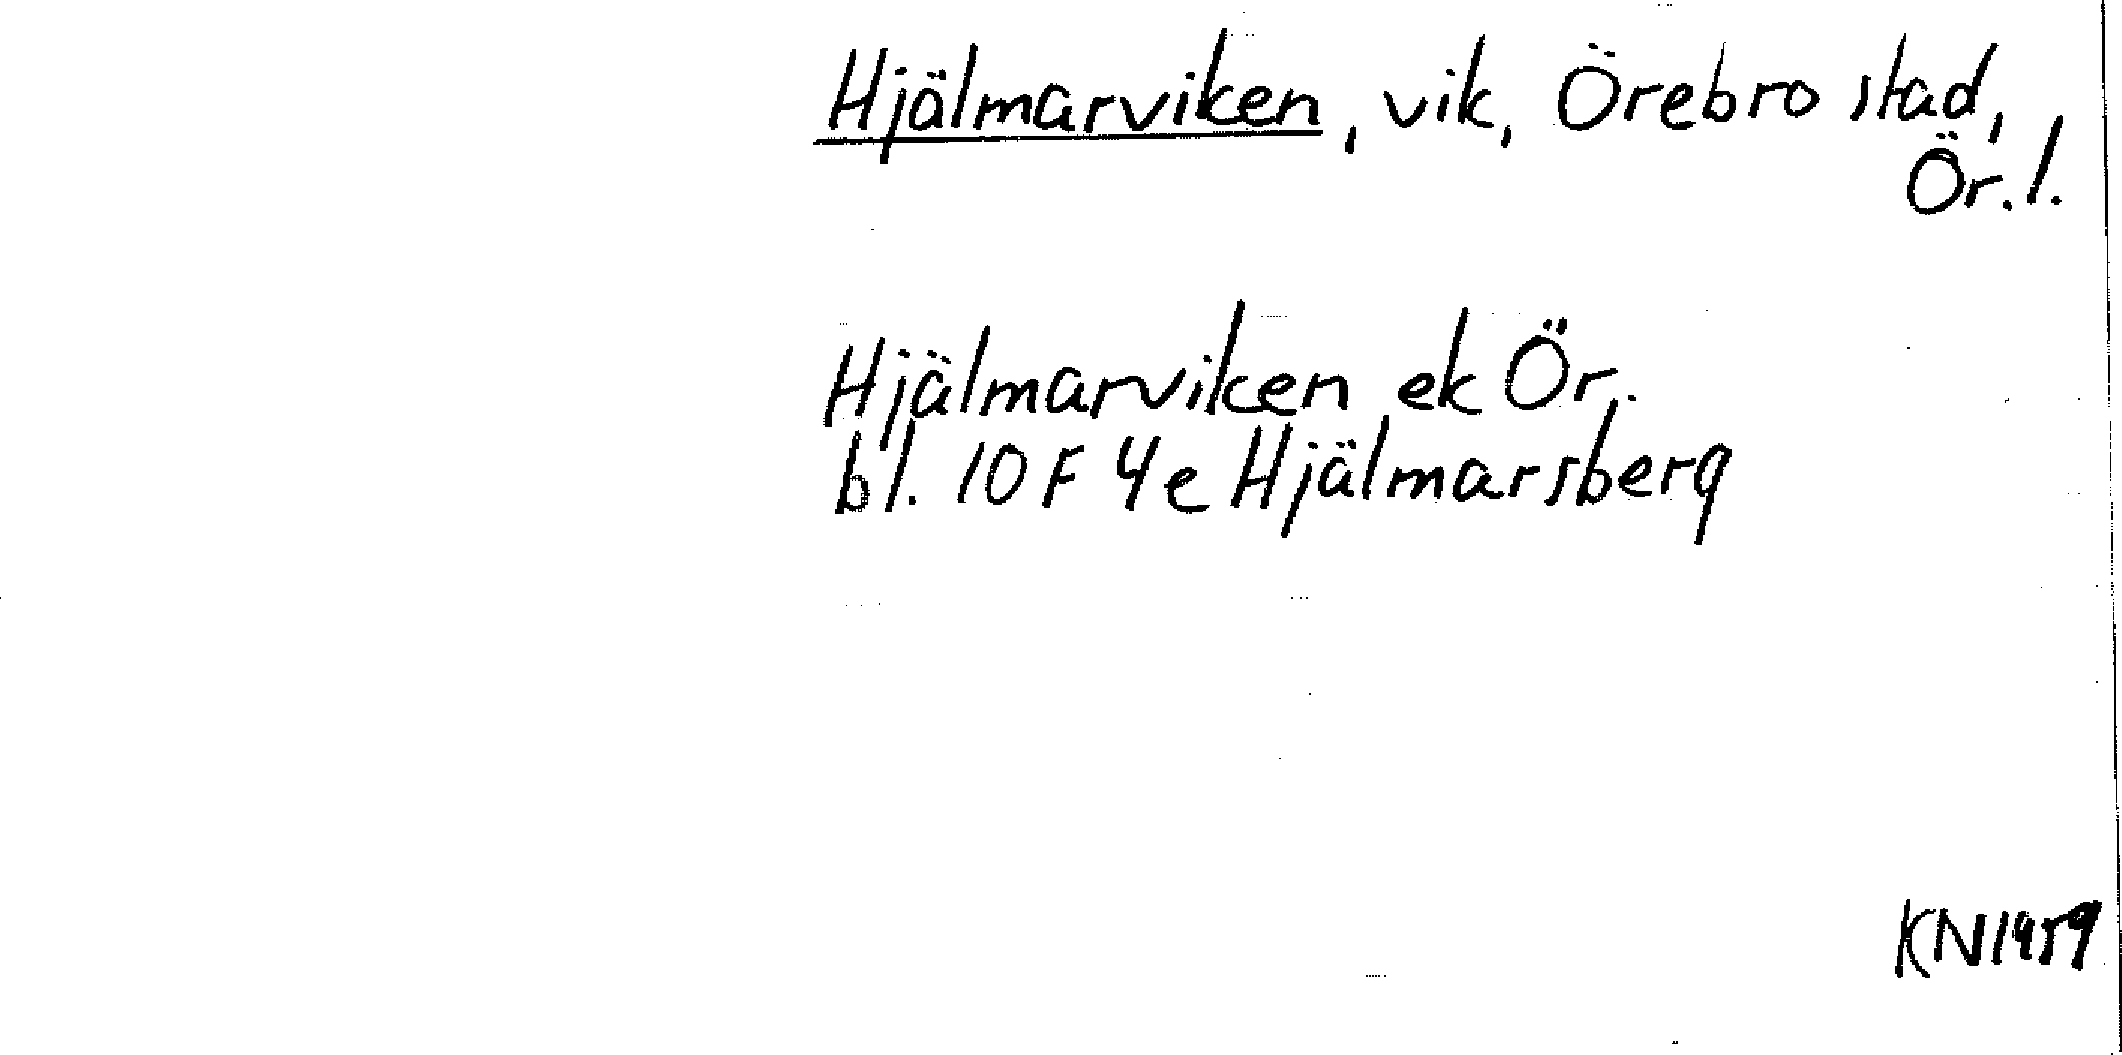 Hjälmarviken, vik, Örebro stad,
Ör. l.
Hjälmarviken ek Ör.
bl. 10 F 4e Hjälmarsberg
KN 1959